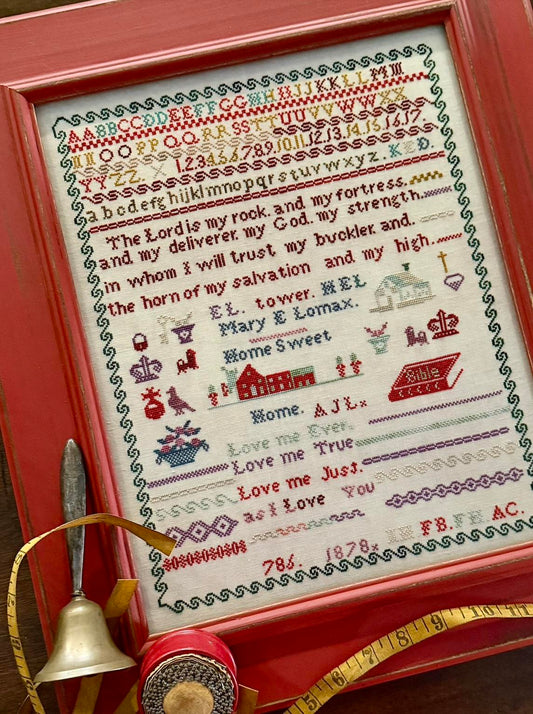 AABBCCDDEEFFGGHHIJJKKLLMM
NNOOPPQQRRSSTTUUVVWWXX
YYZZ. 1.2.3.4.5.6.7.8.9.10.11.12.13.14.15.16.17.
abcdefghijklmnopqrstuvwxyz. KED.
The Lord is my rock. and my fortress.
and. my deliverer. my God. my strength.
in whom I will trust my buckler. and.
the horn of my salvation and my high.
EL. tower. MEL
Mary E Lomax.
Home Sweet
Bible
Home. AJL.
Love me Ever.
Love me True
Love me Just.
as I Love You
786. 1878. FB. FH. AC.
7 8 9 10 11